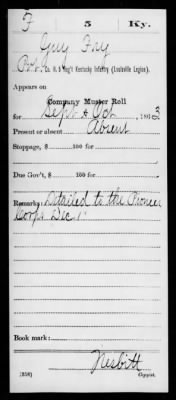 F 5 Ky.
Guy Fry
Pvt., Co. H, 5 Reg't Kentucky Infantry (Louisville Legion).
Appears on
Company Muster Roll
for Sept & Oct, 1863
Present or absent Absent
Stoppage, $ 100 for
Due Gov't, $ 100 for
Remarks: Detailed to the Pioneer
Corps Dec 1"
Book mark:
Nesbitt
(358) Copyist.